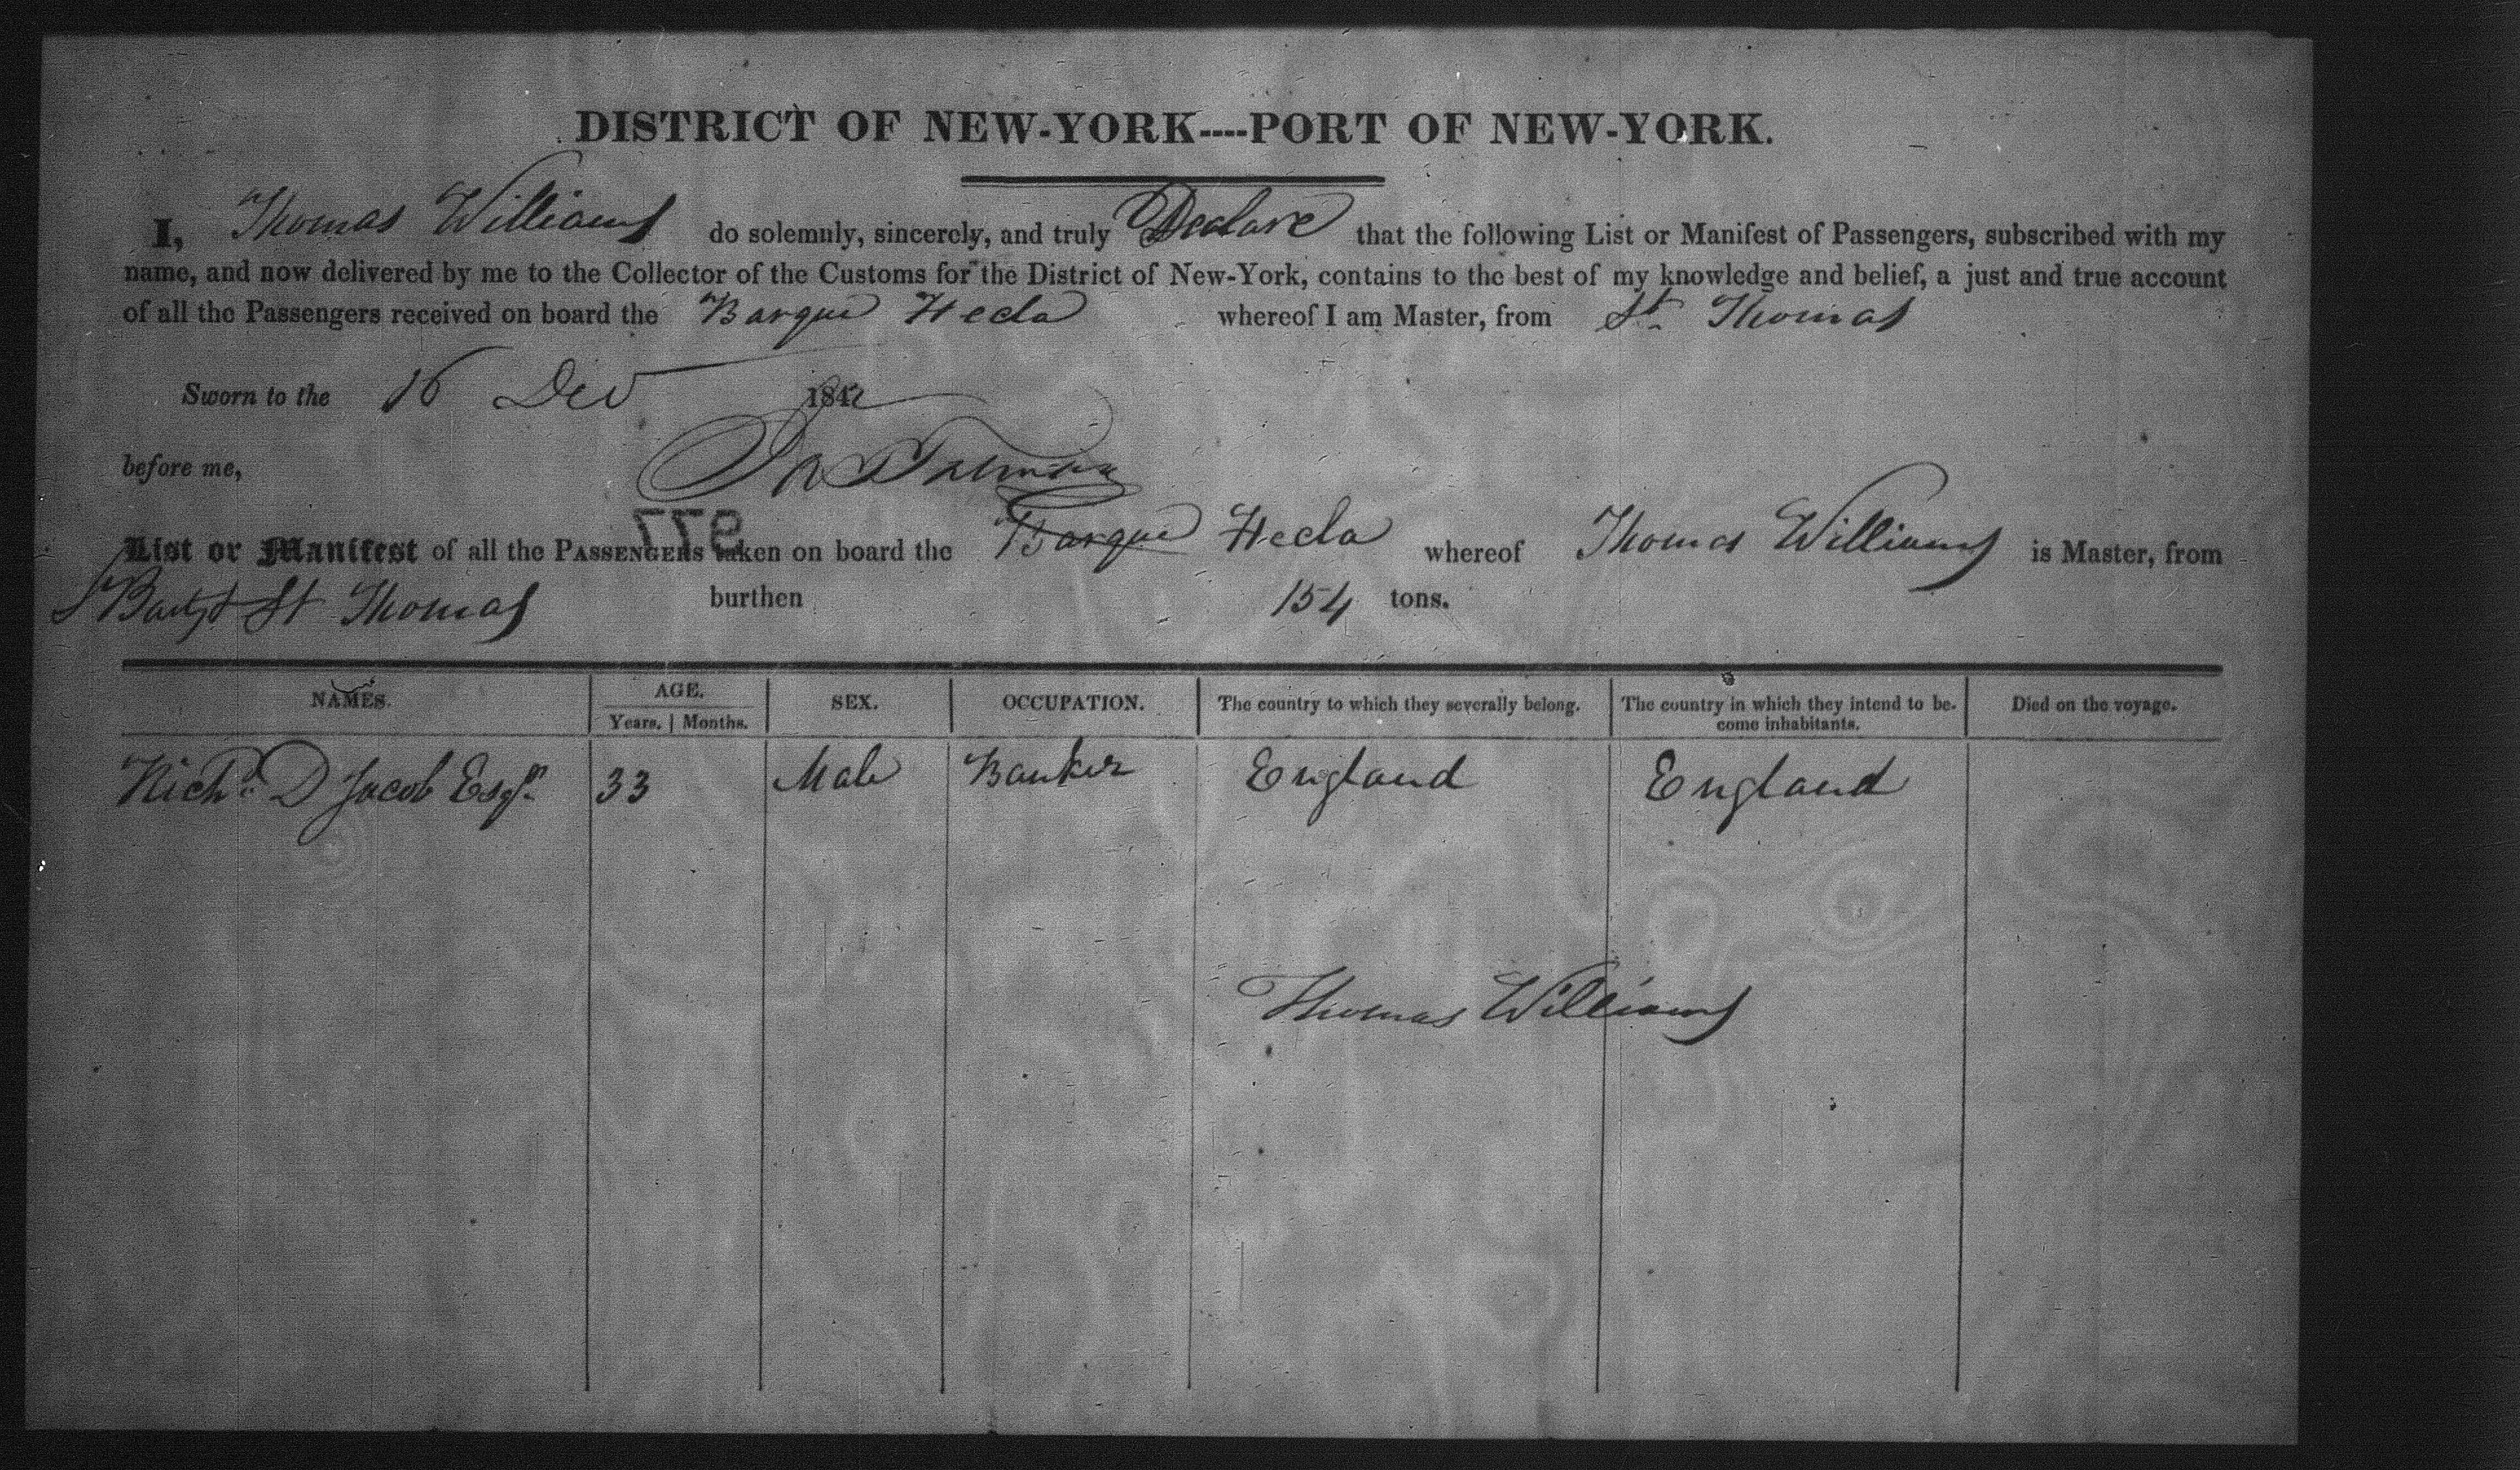 DISTRICT OF NEW-YORK----PORT OF NEW-YORK.
I, Thomas Williams do solemnly, sincerely, and truly Declare that the following List or Manifest of Passengers, subscribed with my
name, and now delivered by me to the Collector of the Customs for the District of New-York, contains to the best of my knowledge and belief, a just and true account
of all the Passengers received on board the Barque Hecla whereof I am Master, from St. Thomas
Sworn to the 16 Dec 1842
before me,
977
List or Manifest of all the PASSENGERS taken on board the Barque Hecla whereof Thomas Williams is Master, from
St Thomas burthen 154 tons.
NAMES. AGE. SEX. OCCUPATION. The country to which they severally belong. The country in which they intend to be- Died on the voyage.
Years. | Months. come inhabitants.
Richd. D Jacob Esqr. 33 Male Banker England England
Thomas Williams